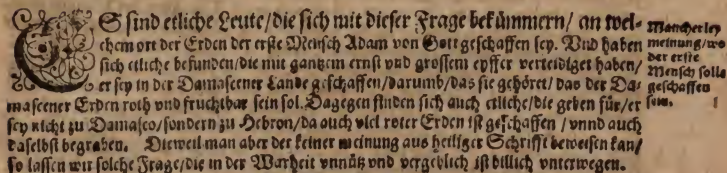 ES sind etliche Leute/die sich mit dieser Frage bekümmern/ an wel-
chem ort der Erden der erste Mensch Adam von Gott geschaffen sey. Vnd haben
sich etliche befunden/die mit gantzem ernst vnd grossem eyffer verteidiget haben/
er sey in der Damascener Lande geschaffen/darumb/das sie gehöret/das der Da-
mascener Erden roth vnd fruchtbar sein sol. Dagegen finden sich auch etliche/die geben für/er
sey nicht zu Damasco/sondern zu Hebron/da auch viel roter Erden ist geschaffen/vnnd auch
daselbst begraben. Dieweil man aber der keiner meinung aus heiliger Schrifft beweisen kan/
so lassen wir solche Frage/die in der Warheit vnnütz vnd vergeblich ist billich vnterwegen.
Mancherley
meinung/wo
der erste
Mensch solle
geschaffen
sein.